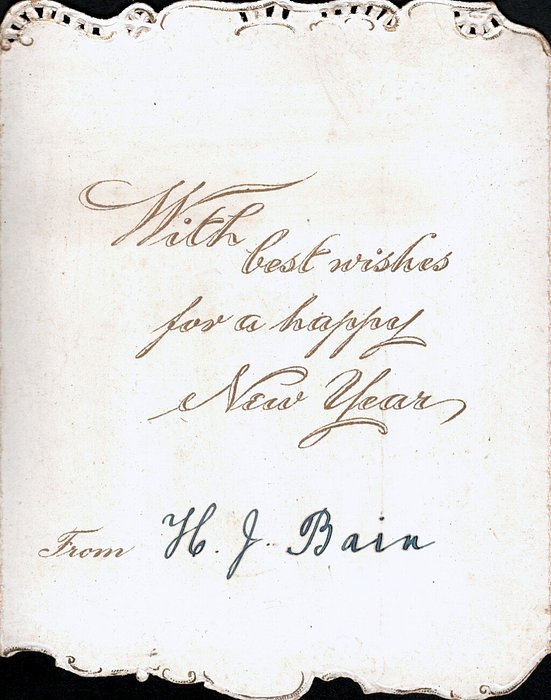 With
best wishes
for a happy
New Year
From H. J. Bain